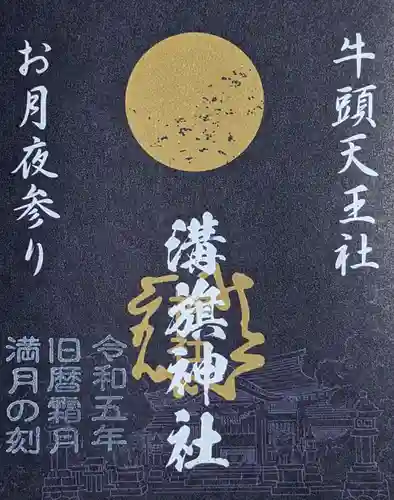 牛頭天王社
溝旗神社
お月夜参り
令和五年
旧暦霜月
満月の刻